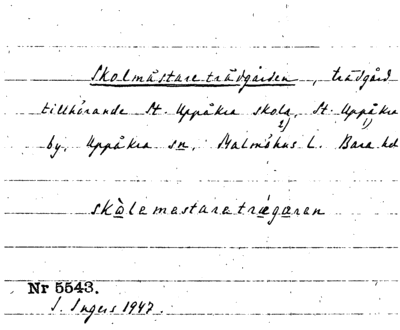 Skolmästareträdgården, trädgård
tillhörande St. Uppåkra skola, St. Uppåkra
2) 1)
by, Uppåkra sn, Malmöhus L. Bara hd
skòlemestaretrægaren
Nr 5543.
I. Ingers 1947.